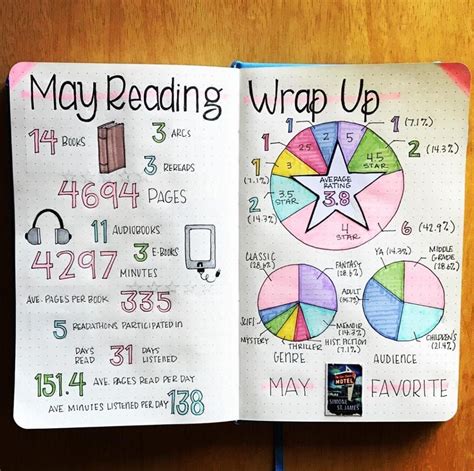 May Reading
14 BOOKS
3 ARCS
3 REREADS
4694 PAGES
11 AUDIOBOOKS
3 E-BOOKS
4297 MINUTES
AVE. PAGES PER BOOK 335
5 READATHONS PARTICIPATED IN
DAYS READ 31 DAYS LISTENED
151.4 AVE. PAGES READ PER DAY
AVE. MINUTES LISTENED PER DAY 138
Wrap Up
1 (7.1%)
1 (7.1%)
2 (14.3%)
2 (14.3%)
6 (42.9%)
1
2.5
2
5
4.5 STAR
3
3.5 STAR
4 STAR
AVERAGE RATING
3.8
CLASSIC (28.6%)
FANTASY (28.6%)
SCIFI
MYSTERY
MEMOIR (14.3%)
HIST. FICTION (7.1%)
THRILLER
GENRE
YA (14.3%)
MIDDLE GRADE (28.6%)
ADULT
CHILDREN'S (21.4%)
AUDIENCE
MAY
MOTEL
SIMONE ST. JAMES
FAVORITE